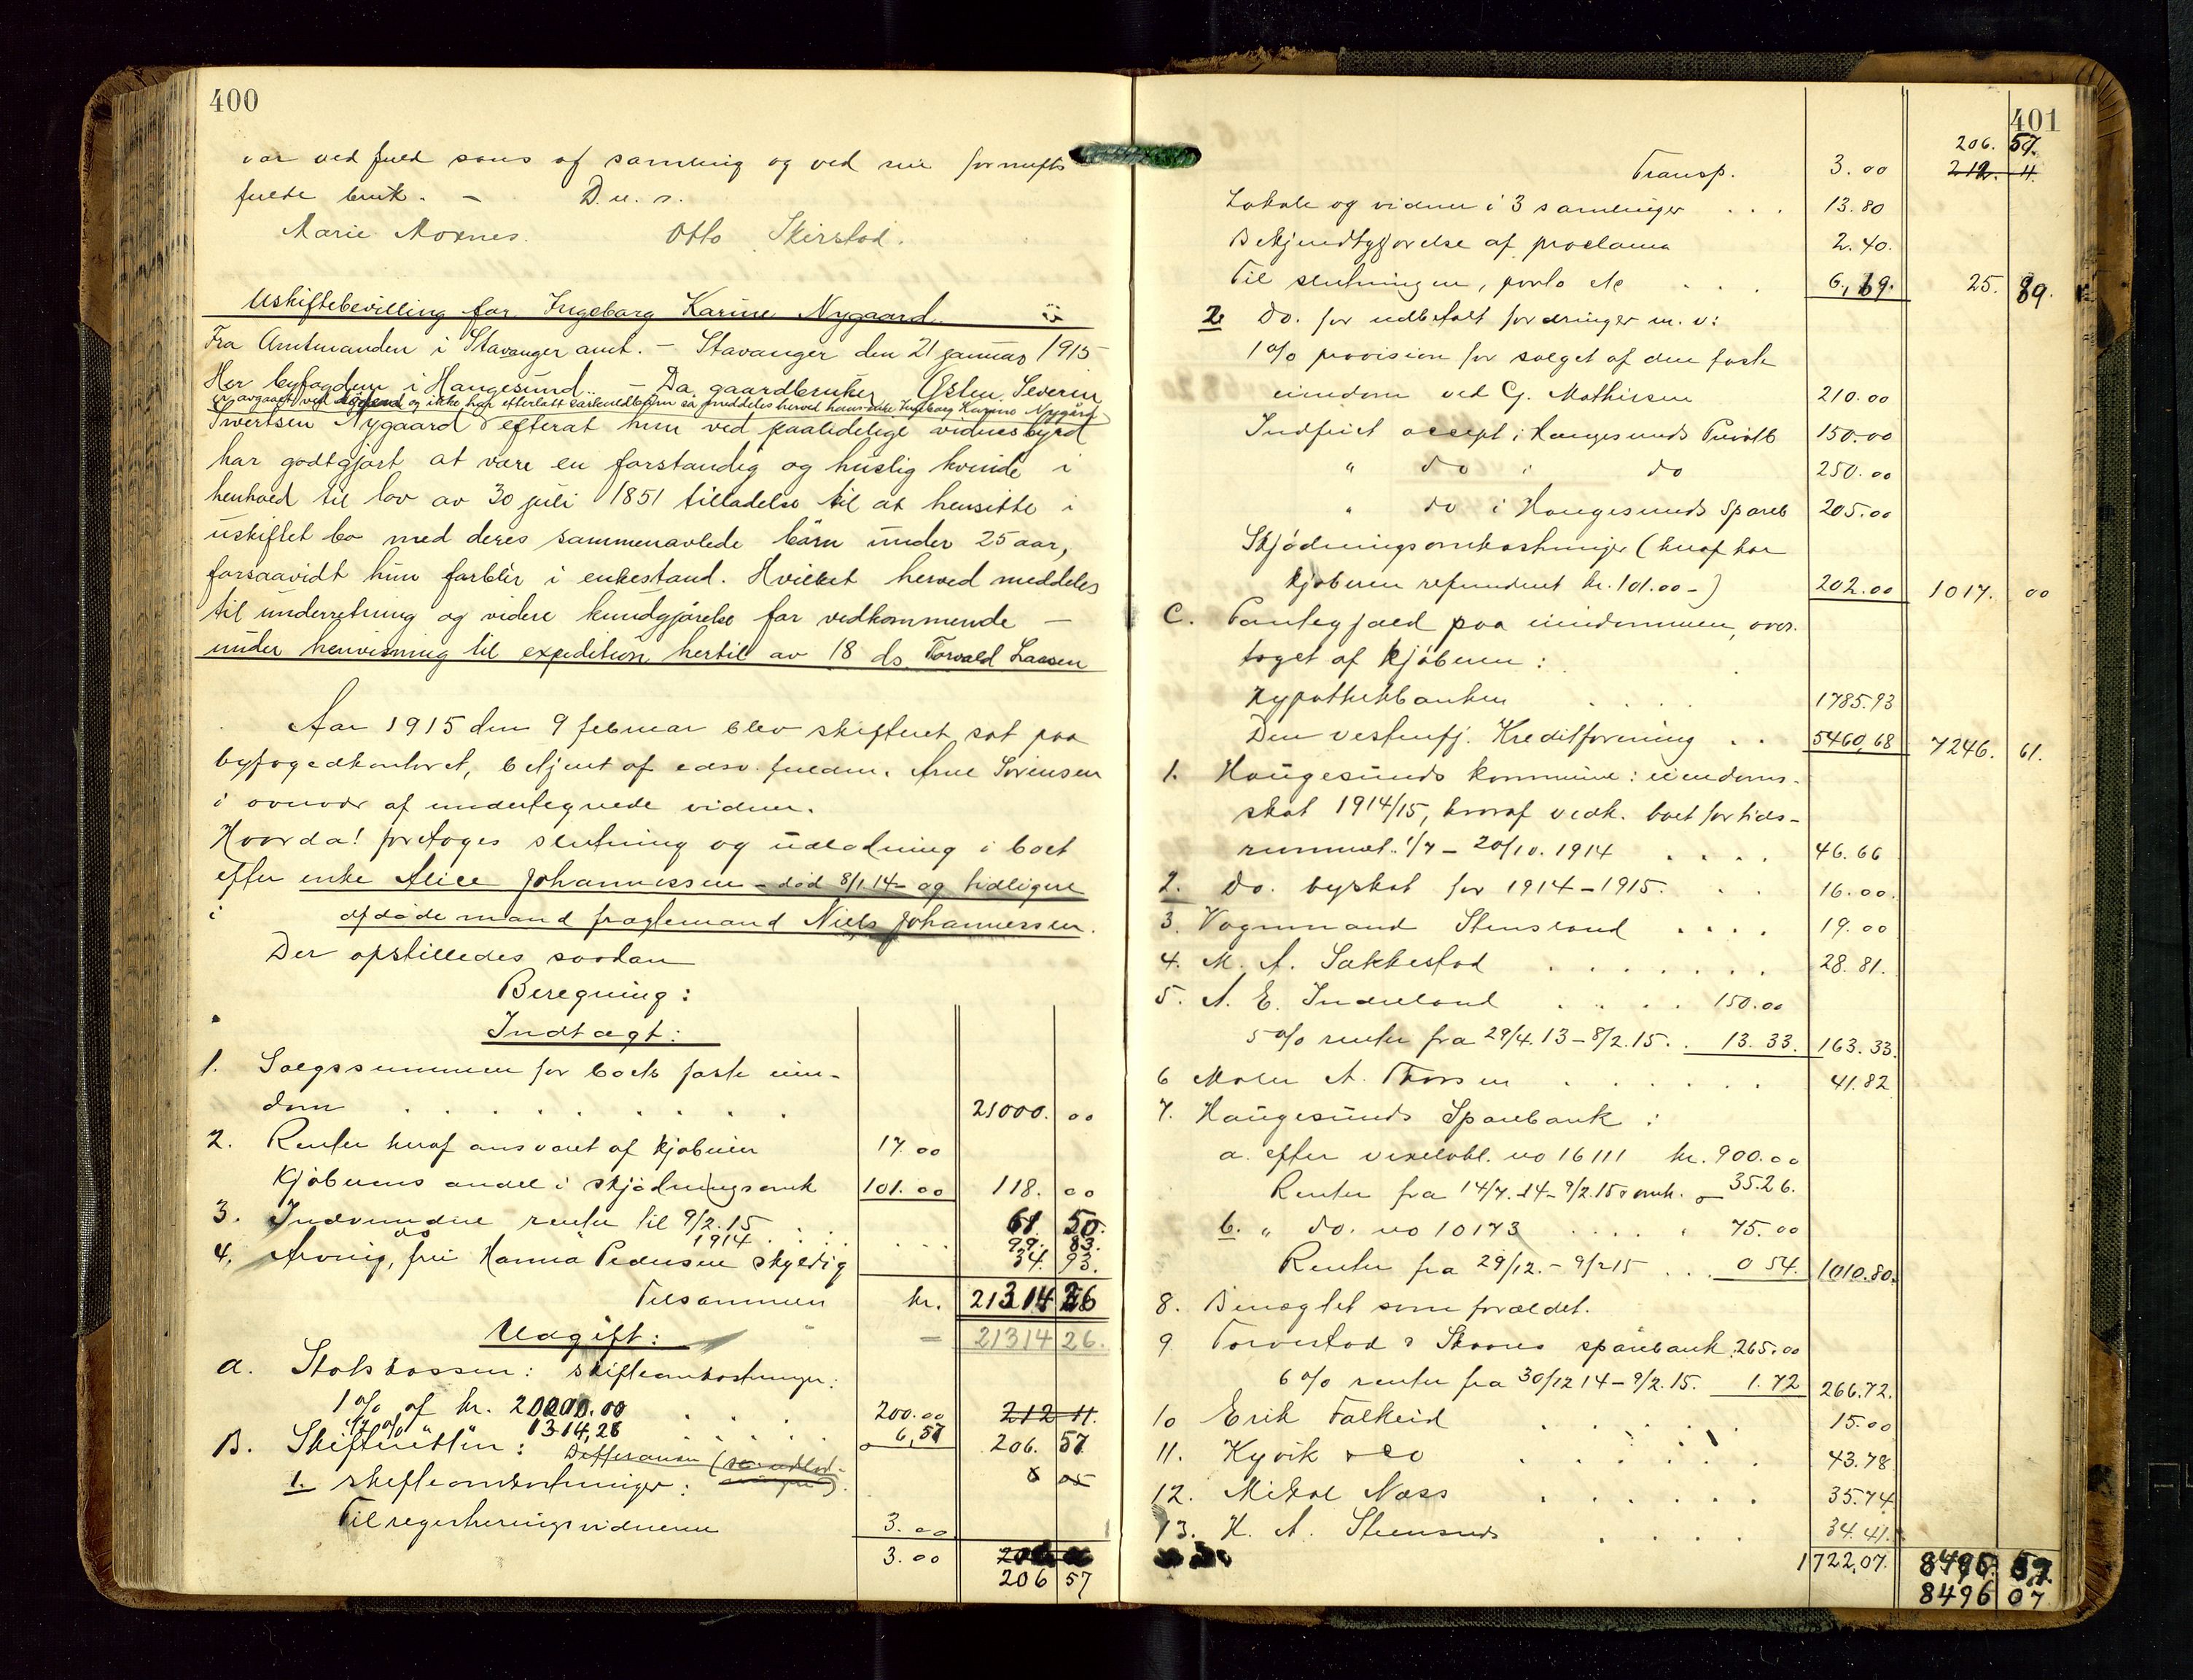 400
var ved fuld sans af samling og ved sin fornufts
fulde bruk. – D. u. s.
Marie Moxnes. Otto Skirstad.
Uskiftebevilling for Ingeborg Karine Nygaard.
Fra Amtmanden i Stavanger amt. – Stavanger den 21 januar 1915
Her byfogden i Haugesund. – Da gaardbruker Østen Severin
er avgaaet ved døden og ikke har efterlatt særkuldbarn saa meddeles herved hans enke Ingeborg Karine Nygård
Ivertsen Nygaard efterat hun ved paalidelige vidnesbyrd
har godtgjort at være en forstandig og huslig kvinde i
henhold til lov av 30 juli 1851 tilladelse til at hensitte i
uskiftet bo med deres sammenavlede børn under 25 aar,
forsaavidt hun forblir i enkestand. Hvilket herved meddeles
til underretning og videre kundgjørelse for vedkommende –
under henvisning til expedition hertil av 18 ds. Torvald Laasen
Aar 1915 den 9 februar blev skifteret sat paa
byfogedkontoret, betjent af edsv. fuldm. Arne Sørensen
i overvær af undertegnede vidner.
Hvorda! foretoges slutning og udlodning i boet
efter enke Alice Johannessen – død 8/1 14 – og tidligere
i afdøde mand fragtemand Niels Johannessen.
Der opstilledes saadan
Beregning:
Indtægt:
1. Salgssummen for boets faste eien-
dom . . . . . . . . 21000. 00
2. Renter heraf ansvaret af kjøberen 17.00
Kjøberens andel i skjødningsomk 101.00 118. 00
3. Indvundne renter til 9/2.15 . . 61. 50.
do 1914 . . . 99. 83.
4. Arving, fru Hanna Pedersen skyldig 34. 93.
Tilsammen kr. 21314 26
Udgift: – 21314 26.
A. Statskassen: skifteomkostninger:
1% af kr. 20000.00 . . . 200.00 212 11.
1/2 % " " 1314,26 . . . . 6,57 206. 57
B. Skifteretten: Differansen
1. skifteomkostninger:
Til registreringsvidnerne 3.00
3.00
206 57
401
206. 57.
Transp. 3.00 212. 11.
Lokale og vidner i 3 samlinger . . . 13.80
Bekjendtgjørelse af proclama 2.40.
Til slutningen, porto etc . . . 6,69. 25. 89.
2 Do. for udbetalt fordringer m. v:
1% provision for salget af den faste
eiendom ved G. Mathisen 210.00
Indfriet accept i Haugesunds Privatb 150.00
" do i do 250.00
" do i Haugesunds Spareb 205.00
Skjødningsomkostninger (heraf har
kjøberen refunderet kr. 101.00 –) 202.00 1017. 00
C. Pantegjæld paa eiendommen, over-
taget af kjøberen:
Hypothekbanken . . . . 1785.93
Den vestenfj. Kreditforening . . 5460,68 7246. 61.
1. Haugesunds kommune: eiendoms-
skat 1914/15, hvoraf vedk. boet for tids-
rummet 1/7 – 20/10. 1914 . . . . 46.66
2. Do. byskat for 1914 – 1915. . . 16.00.
3. Vognmand Stensland . . . . 19.00
4. M. A. Sakkestad . . . . . . . 28.81.
5. A. E. Indreland . . . . 150.00
5% renter fra 29/4.13 – 8/2.15. . 13.33. 163.33.
6 Maler A. Thorsen . . . . . . 41.82
7. Haugesunds Sparebank :
a. efter vexelobl. no 16111 kr. 900.00
Renter fra 14/7.14 – 9/2.15 & omk. 35.26.
b. " do. no 10173 . . . . . 75.00
Renter fra 29/12. – 9/2 15 . . . 0 54. 1010.80.
8. Benægtet som forældet.
9 Torvestad & Skaares sparebank 265.00
6% renter fra 30/12 14 – 9/2.15. 1.72 266.72.
10 Erik Falkeid . . . . . . 15.00
11. Kyvik & Co . . . . . . 43.78
12. Mikal Næss . . . . . . 35.74
13. H. A. Steensnæs . . . . 34.41.
1722,07. 8496. 07.
8496 07